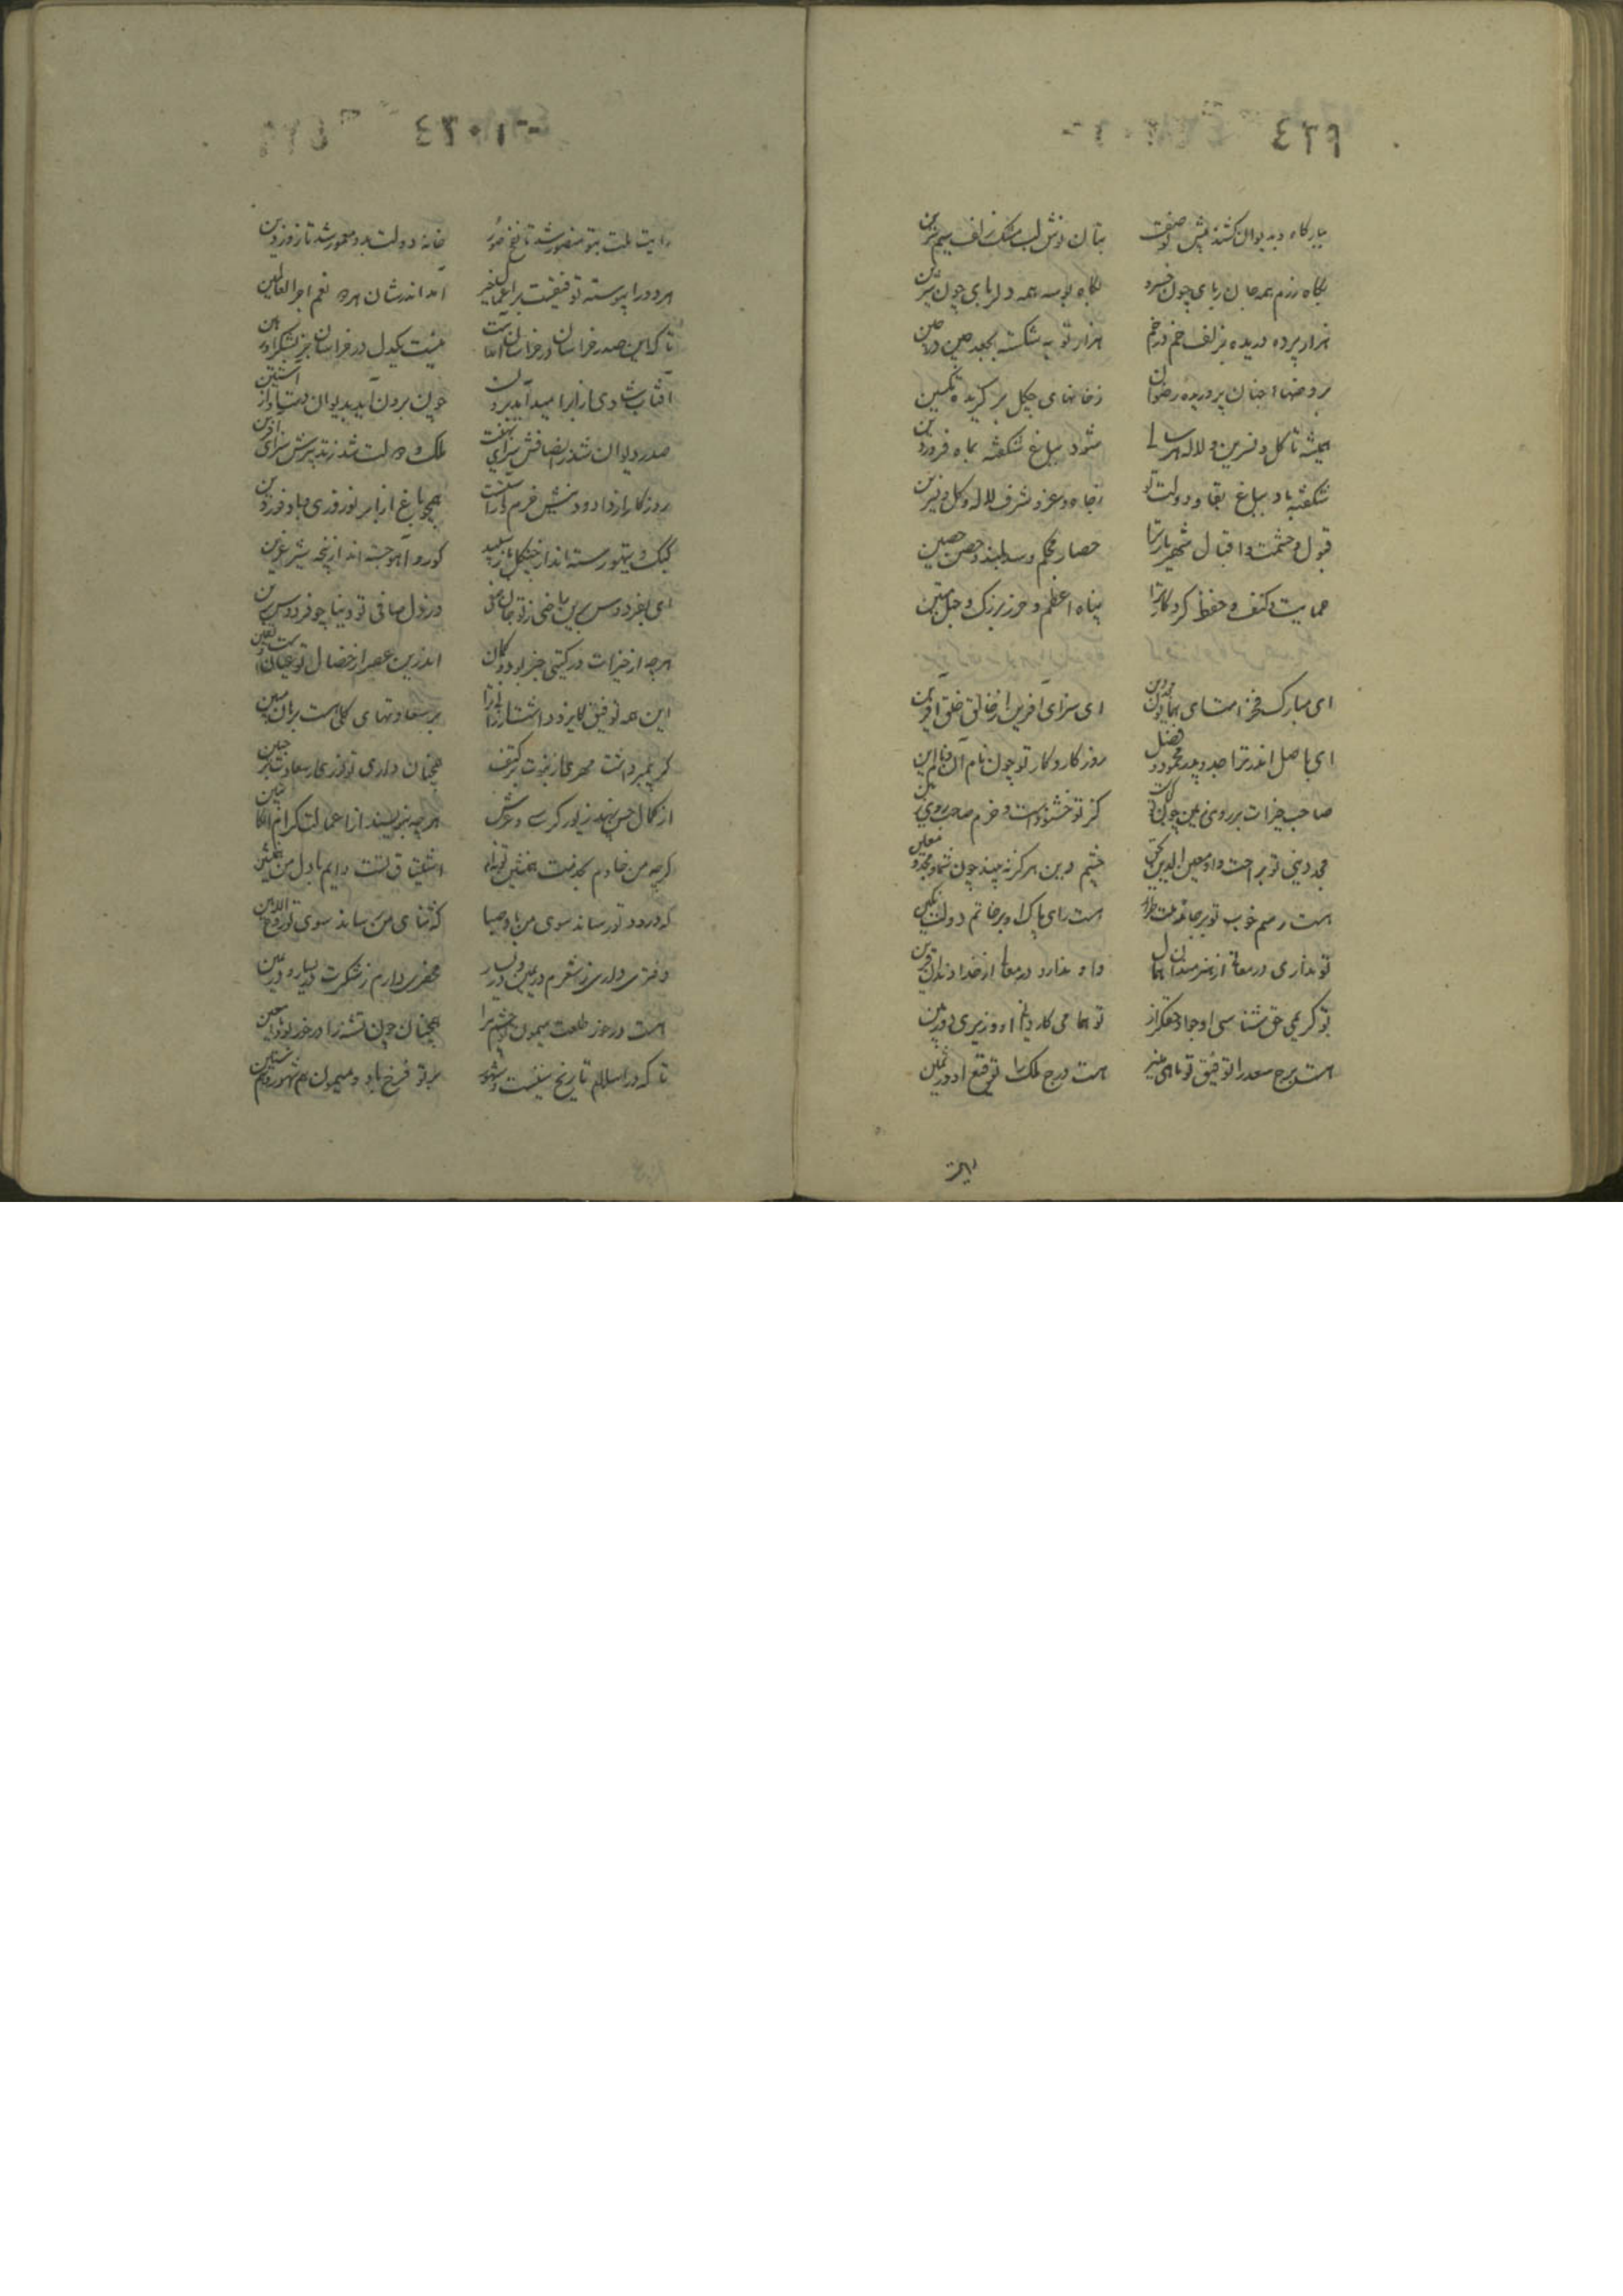 ٤٢٩
بارگاه و بدیوان کشند پیش تو صف بتان نوش لب مشک زلف سیم سرین
بگاه رزم همه جان ربای چون خسرو بگاه بوسه همه دلربای چون شیرین
هزار پرده دریده بزلف خم در خم هزار توبه شکسته بجعد چین در چین
بروضها جنان پروریده رضوان ز خانهای چگل برگزیده تکسین
همیشه تا گل و نسرین و لاله هر سال شود بباغ شکفته بماه فروردین
شکفته باد بباغ بقا و دولت تو ز جاه و عز و شرف لاله و گل و نسرین
قبول و حشمت و اقبال شهریار ترا حصار محکم و سد بلند و حصن حصین
حمایت و کنف و حفظ کردگار ترا پناه اعظم و حرز بزرگ و حبل متین
ای مبارک فخر امت ای همایون مجد دین ای سزای آفرین از خالق خلق آفرین
ای باصل اندر ترا جد و پدر محمود و فضل روزگار و کار تو چون نام آن و نام این
صاحب خیرات بر روی زمین چون تو کجاست کز تو خشنود است و خرم صاحب روی زمین
مجد دینی تو براحت داد معین الدین بحق چشم دین هرگز نبیند چون شما مجد و معین
هست رسم خوب تو بر جامه ملت طراز هست رای پاک او بر خاتم دولت نگین
تو نداری در معالی از هنرمندان همال داو ندارد در معالی از خداوندان قرین
تو کریمی حق شناسی او جوادی حقگزار تو همامی کاردانی او وزیری دوربین
هست برج سعد را توفیق تو ماهی منیر هست درج ملک را توقیع او در ثمین
٤٣٠
رایت ملت بتو منصور شد تا نفخ صور خانه دولت بدو معمور شد تا روز دین
هر دو را پیوسته توفیقست بر اعمال خیر آمد اندر شان هر دو نعم اجر العاملین
تا که این صدر خراسان در خراسان آمدست نیست یکدل در خراسان جز بشکر او رهین
آفتاب شادی از ابر امید آید برون چون برون آید بدیوان دست او از آستین
صدر دیوان شد ز انصافش سزای تهنیت ملک و دولت شد ز تدبیرش سزای آفرین
روزگار از داد و دینش خرم و آراستست همچو باغ از ابر نوروزی و باد فرودین
کبک و تیهو رسته‌اند از چنگل باز سپید گور و آهو جسته‌اند از پنجه شیر عرین
ای بفردوس برین راضی ز تو جان علی در دل صافی تو دنیا چو فردوس برین
هر چه از خیرات در گیتی خبر بود و گمان اندرین عصر از خصال تو عیانست و یقین
این همه توفیق کایزد داشتست ارزان ترا بر سعادتهای کلی هست برهان مبین
گر پیمبر داشت مهری از نبوت بر کتف همچنان داری تو نوری از سعادت بر جبین
از کمال حسن بنهد زیور کرسی و عرش هر چه بنویسند از اعمالت کرام الکاتبین
گرچه من خادم بخدمت همنشین تو نیم اشتیاق تست دایم با دل من همنشین
که درود تو رساند سوی من باد صبا که ثنای من رساند سوی تو روح الامین
دفتری داری ز شعرم در یمین و در یسار محضری دارم ز شکرت در یسار و در یمین
هست در خور طلعت میمون تو چشم مرا همچنان چون تشنه را در خور بود ماء معین
تا که در اسلام تاریخ سنینست و شهور بر تو فرخ باد و میمون هم شهور و هم سنین